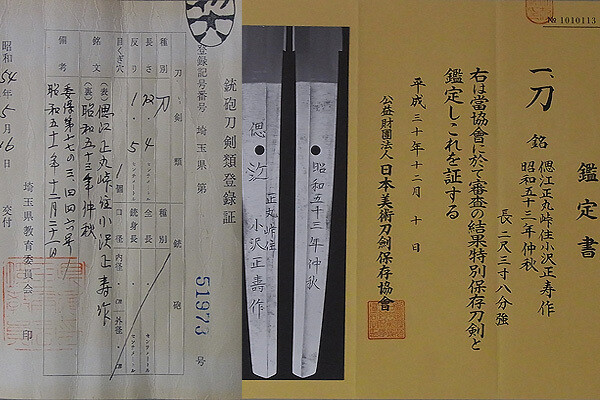 № 1010113
鑑定書
一、刀 銘 偲江正丸峠住小沢正寿作
昭和五十三年仲秋
長 二尺三寸八分強
右は當協會に於て審査の結果特別保存刀剣と
鑑定しこれを証する
平成三十年十二月 十日
公益財團法人 日本美術刀剣保存協會
昭和五十三年仲秋
偲江
正丸峠住
小沢正壽作
銃砲刀剣類登録証
登録記号番号 埼玉県 第 51973 号
刀剣類 銃砲
種別 刀 種別
長さ 72.4 センチメートル 全長 センチメートル
反り 1.5 センチメートル 銃身長 センチメートル
目くぎ穴 1個 口径 内径 ㎝ 外径 ㎝
銘文 (表) 偲江正丸峠住小沢正寿作
(裏) 昭和五十三年仲秋
備考
昭和54年5月16日 交付
埼玉県教育委員会 印